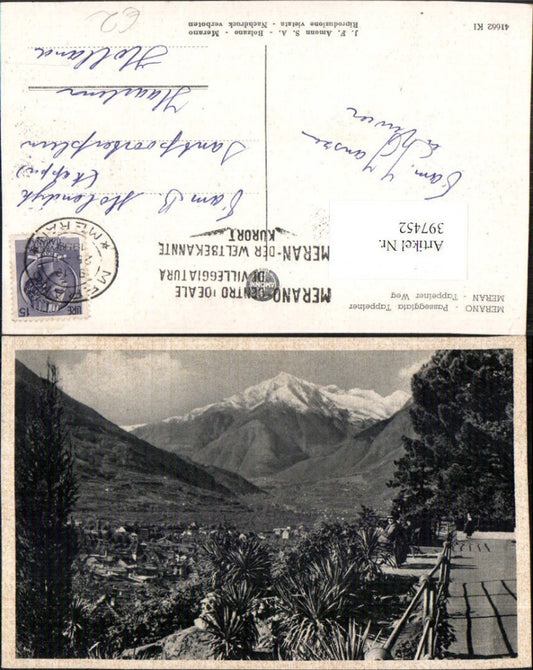 MERANO - Passeggiata Tappeiner
MERAN - Tappeiner Weg
Artikel Nr.
397452
MERANO-CENTRO IDEALE
DI VILLEGGIATURA
MERAN-DER WELTBEKANNTE
KURORT
MERA
LIRE 15
Fam. Y Jansen
Fam. B Molendyk
Santpoorterplein
Haarlem
Holland
J. F. Amonn S. A. - Bolzano - Merano
Riproduzione vietata - Nachdruck verboten
41662 KI
62